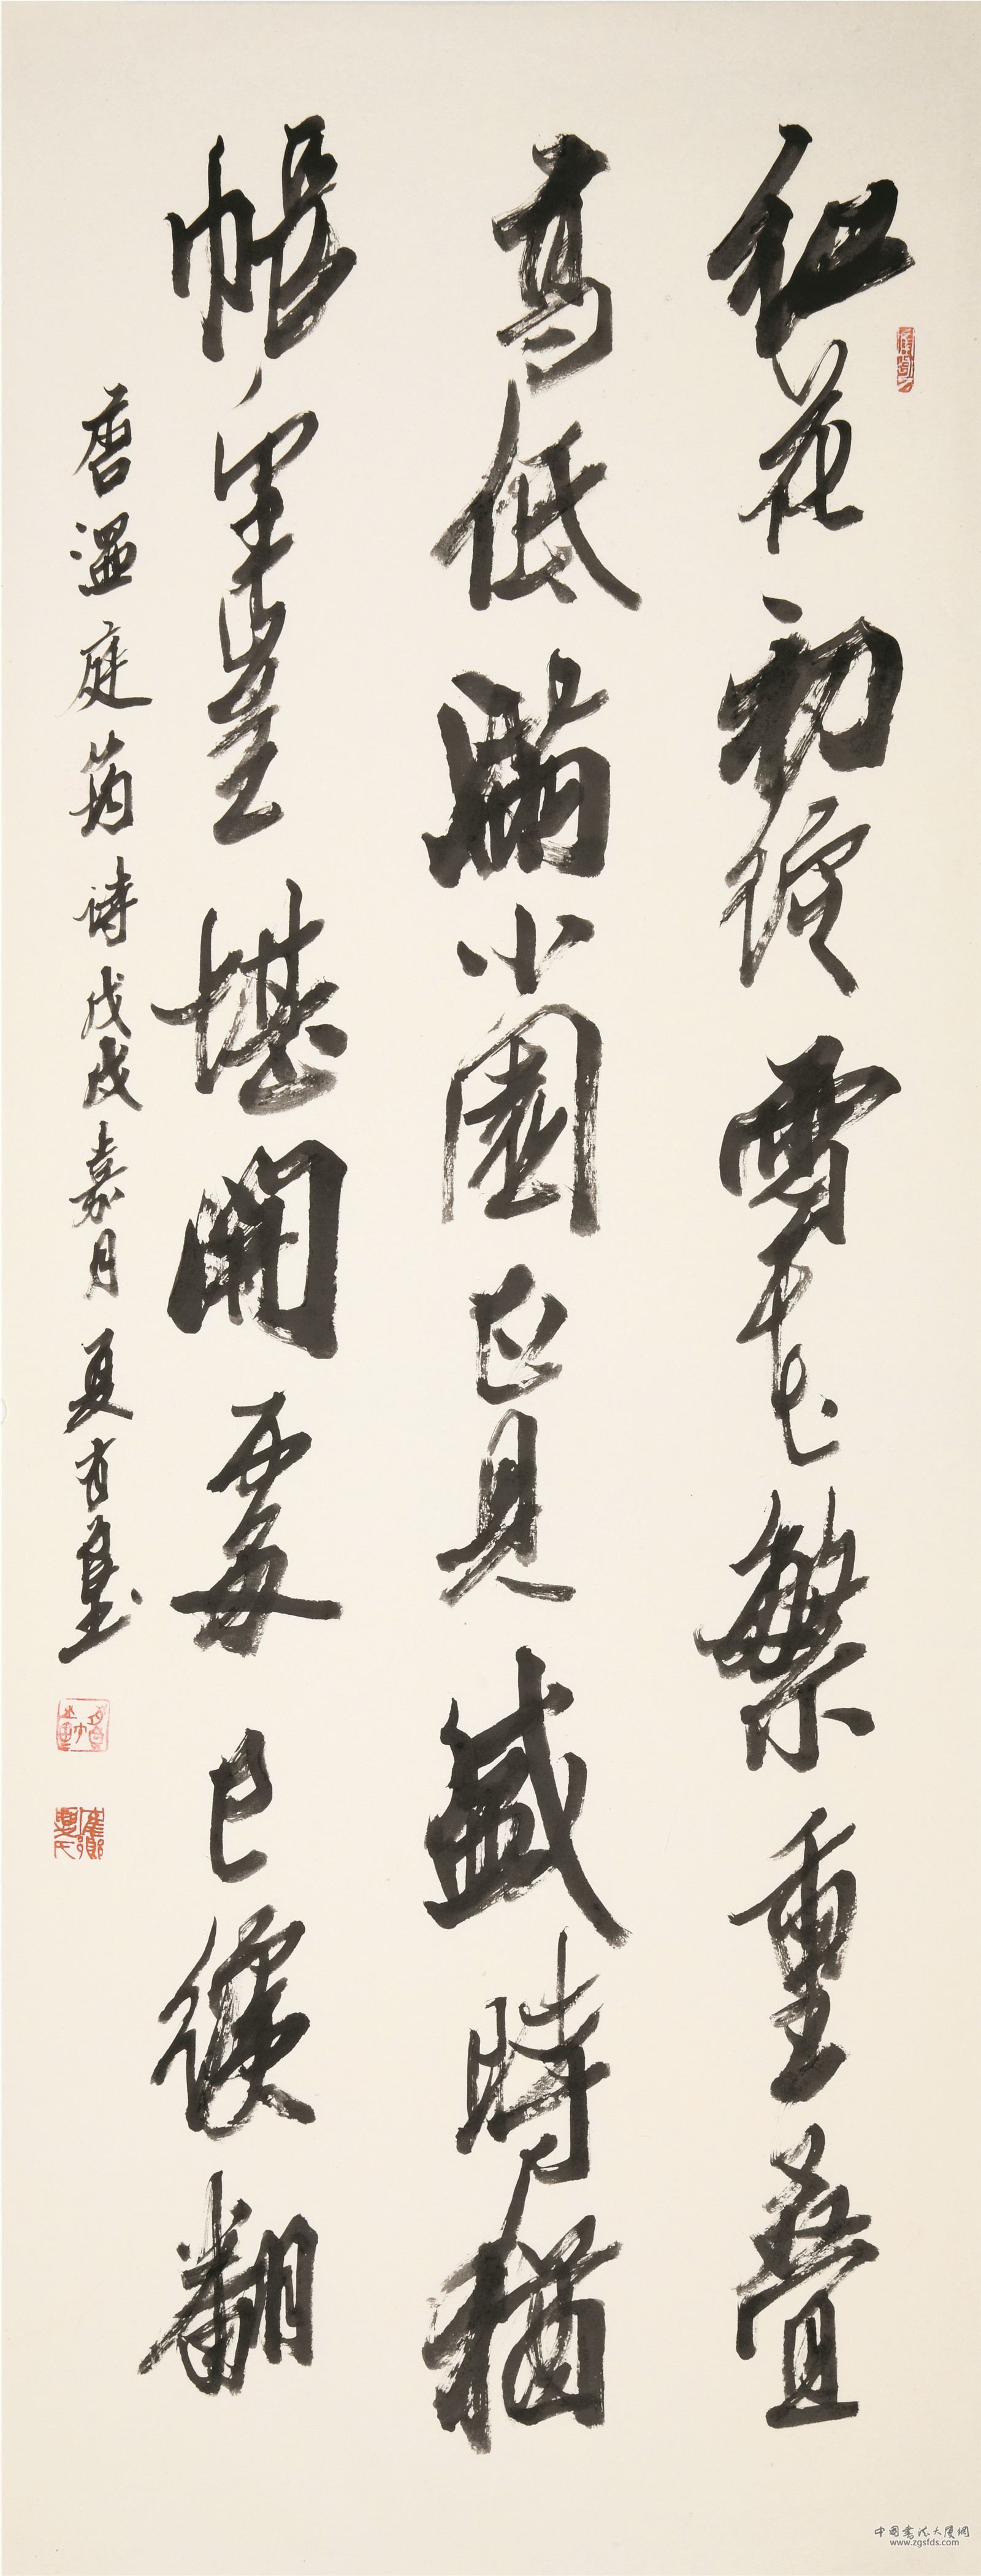 紅花初綻雪花繁重叠
高低滿小園正見盛時猶
悵望豈堪開處已繽翻
唐溫庭筠詩戊戌嘉月夏
中國書法大廈網
www.zgsfds.com